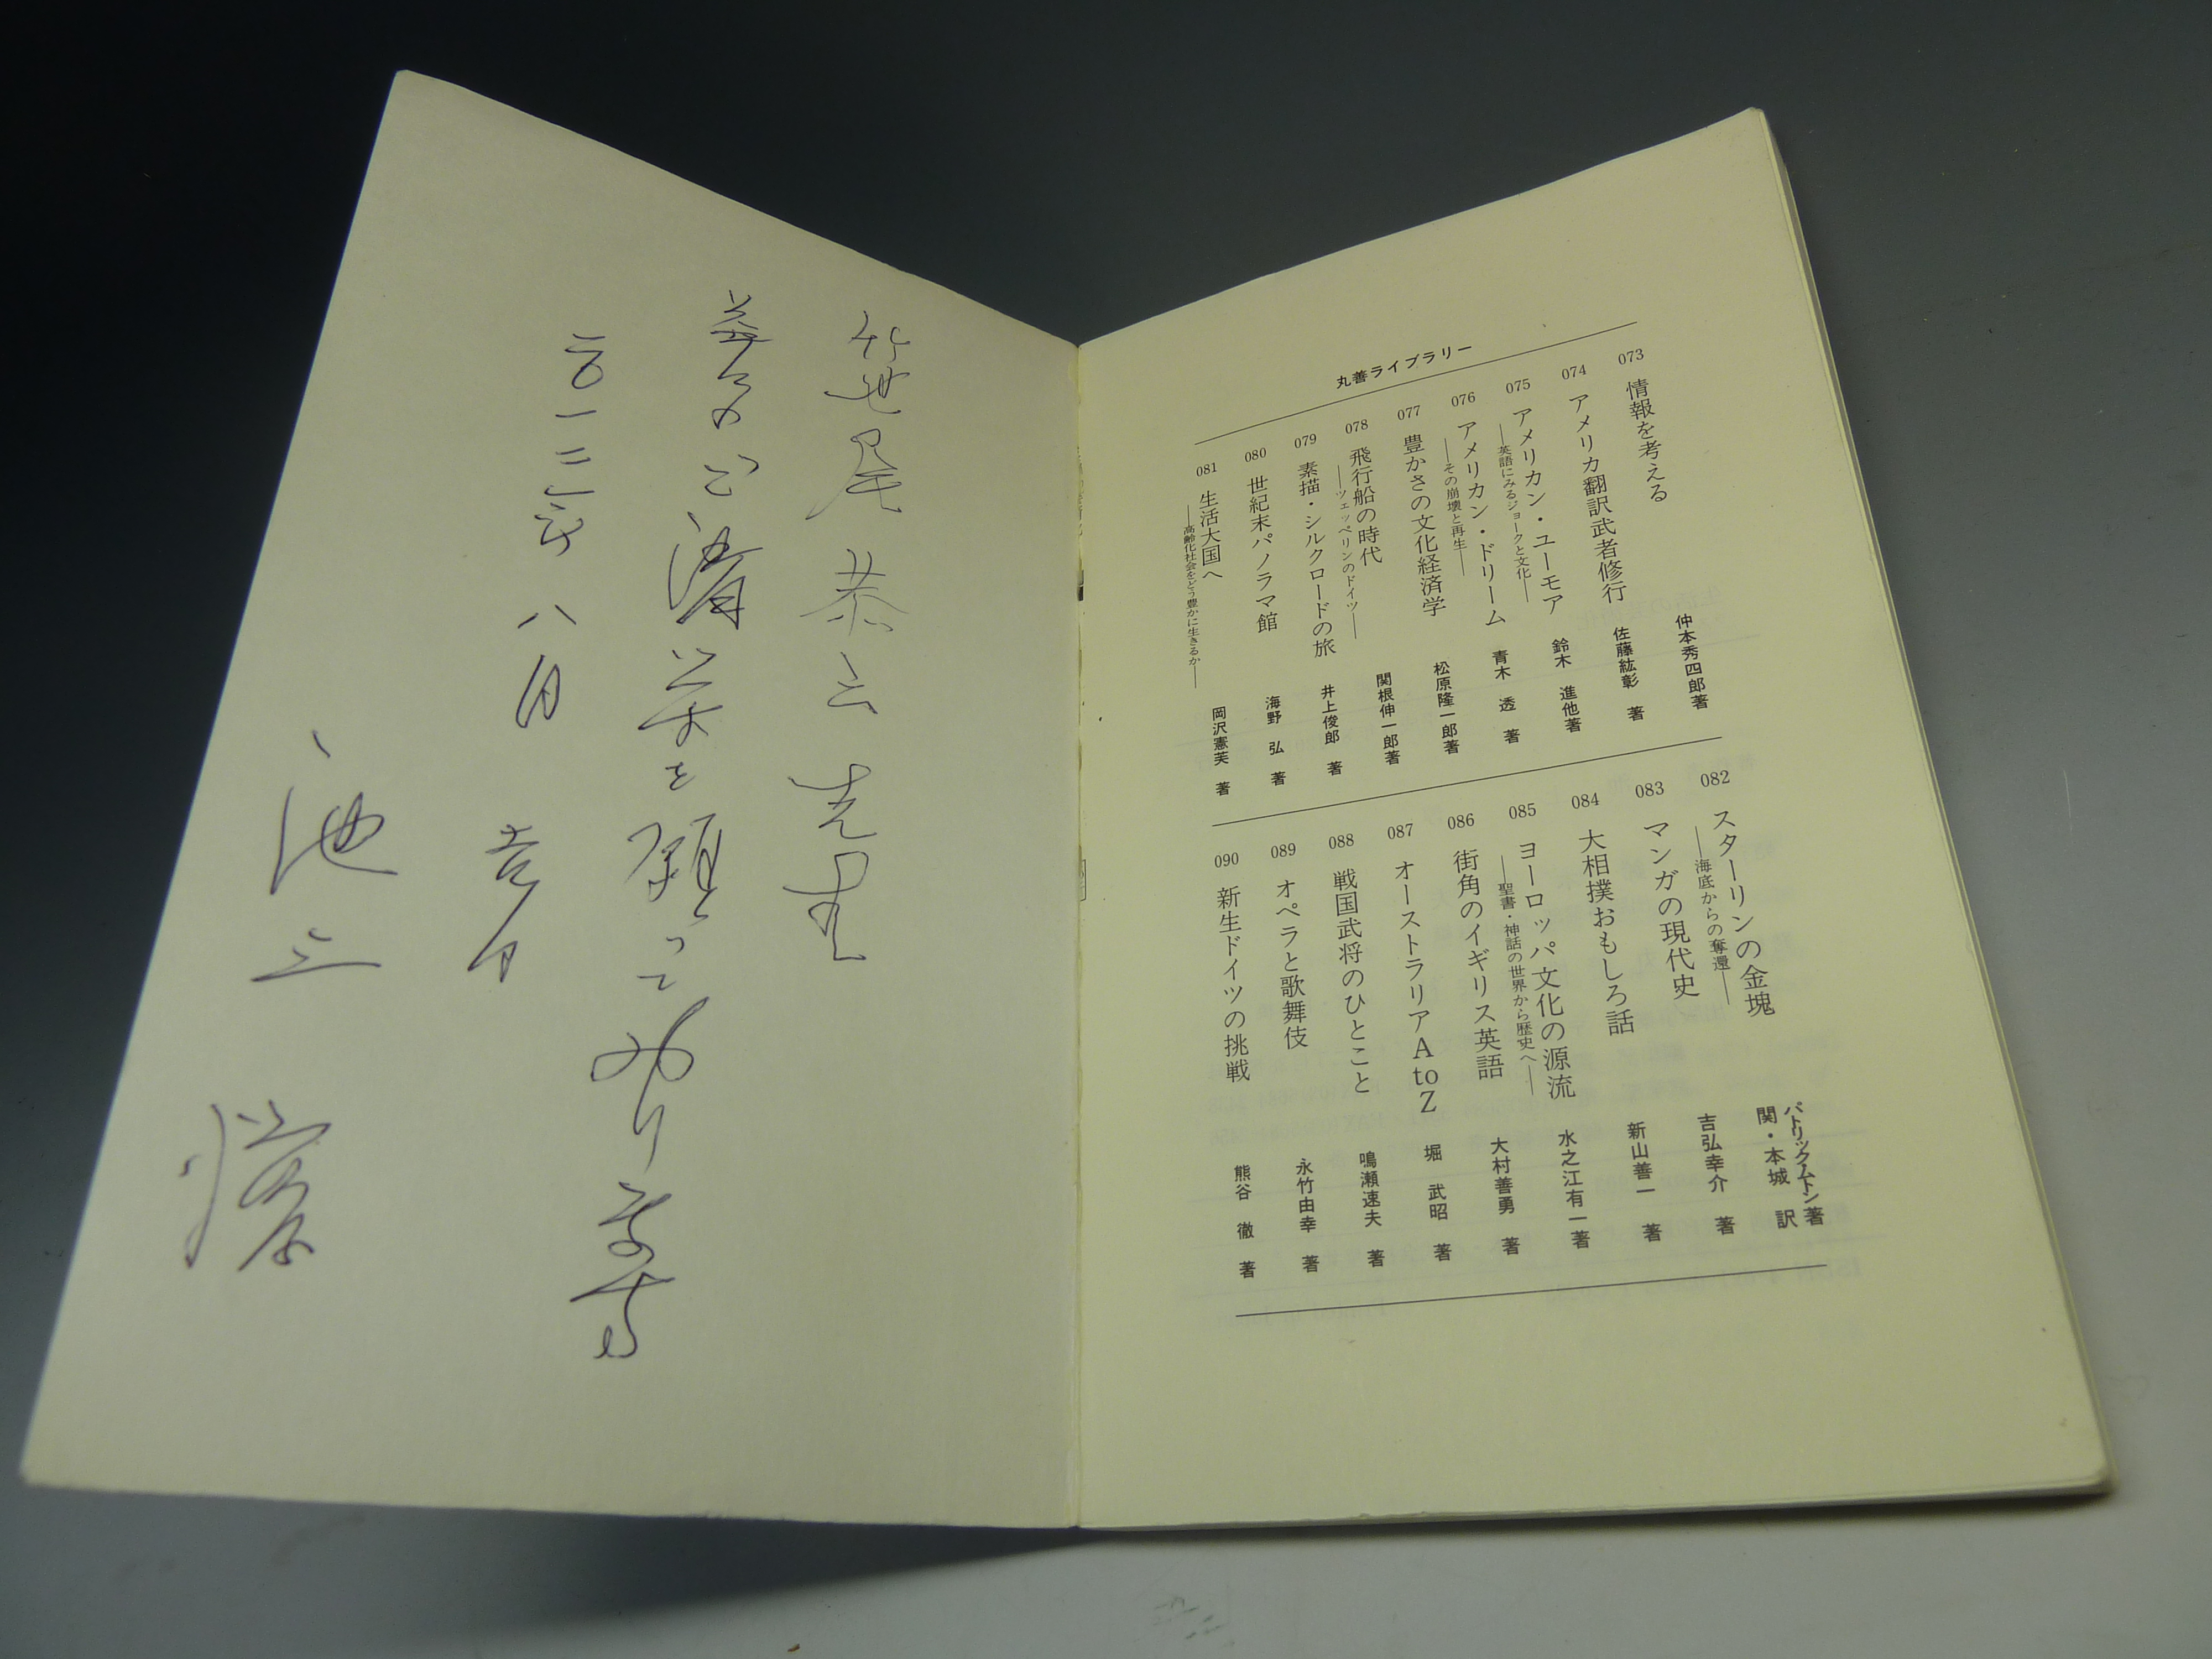 笹尾恭二先生
益々のご清栄を願っており
二〇一二年八月吉日
池上
丸善ライブラリー
073 情報を考える 仲本秀四郎著
074 アメリカ翻訳武者修行 佐藤紘彰 著
075 アメリカン・ユーモア
―英語にみるジョークと文化― 鈴木 進他著
076 アメリカン・ドリーム
―その崩壊と再生― 青木 透 著
077 豊かさの文化経済学 松原隆一郎著
078 飛行船の時代
―ツェッペリンのドイツ― 関根伸一郎著
079 素描・シルクロードの旅 井上俊郎 著
080 世紀末パノラマ館 海野 弘 著
081 生活大国へ
―高齢化社会をどう豊かに生きるか― 岡沢憲芙 著
082 スターリンの金塊
―海底からの奪還― パトリックムトン著
関・本城 訳
083 マンガの現代史 吉弘幸介 著
084 大相撲おもしろ話 新山善一 著
085 ヨーロッパ文化の源流
―聖書・神話の世界から歴史へ― 水之江有一著
086 街角のイギリス英語 大村善勇 著
087 オーストラリア A to Z 堀 武昭 著
088 戦国武将のひとこと 鳴瀬速夫 著
089 オペラと歌舞伎 永竹由幸 著
090 新生ドイツの挑戦 熊谷 徹 著